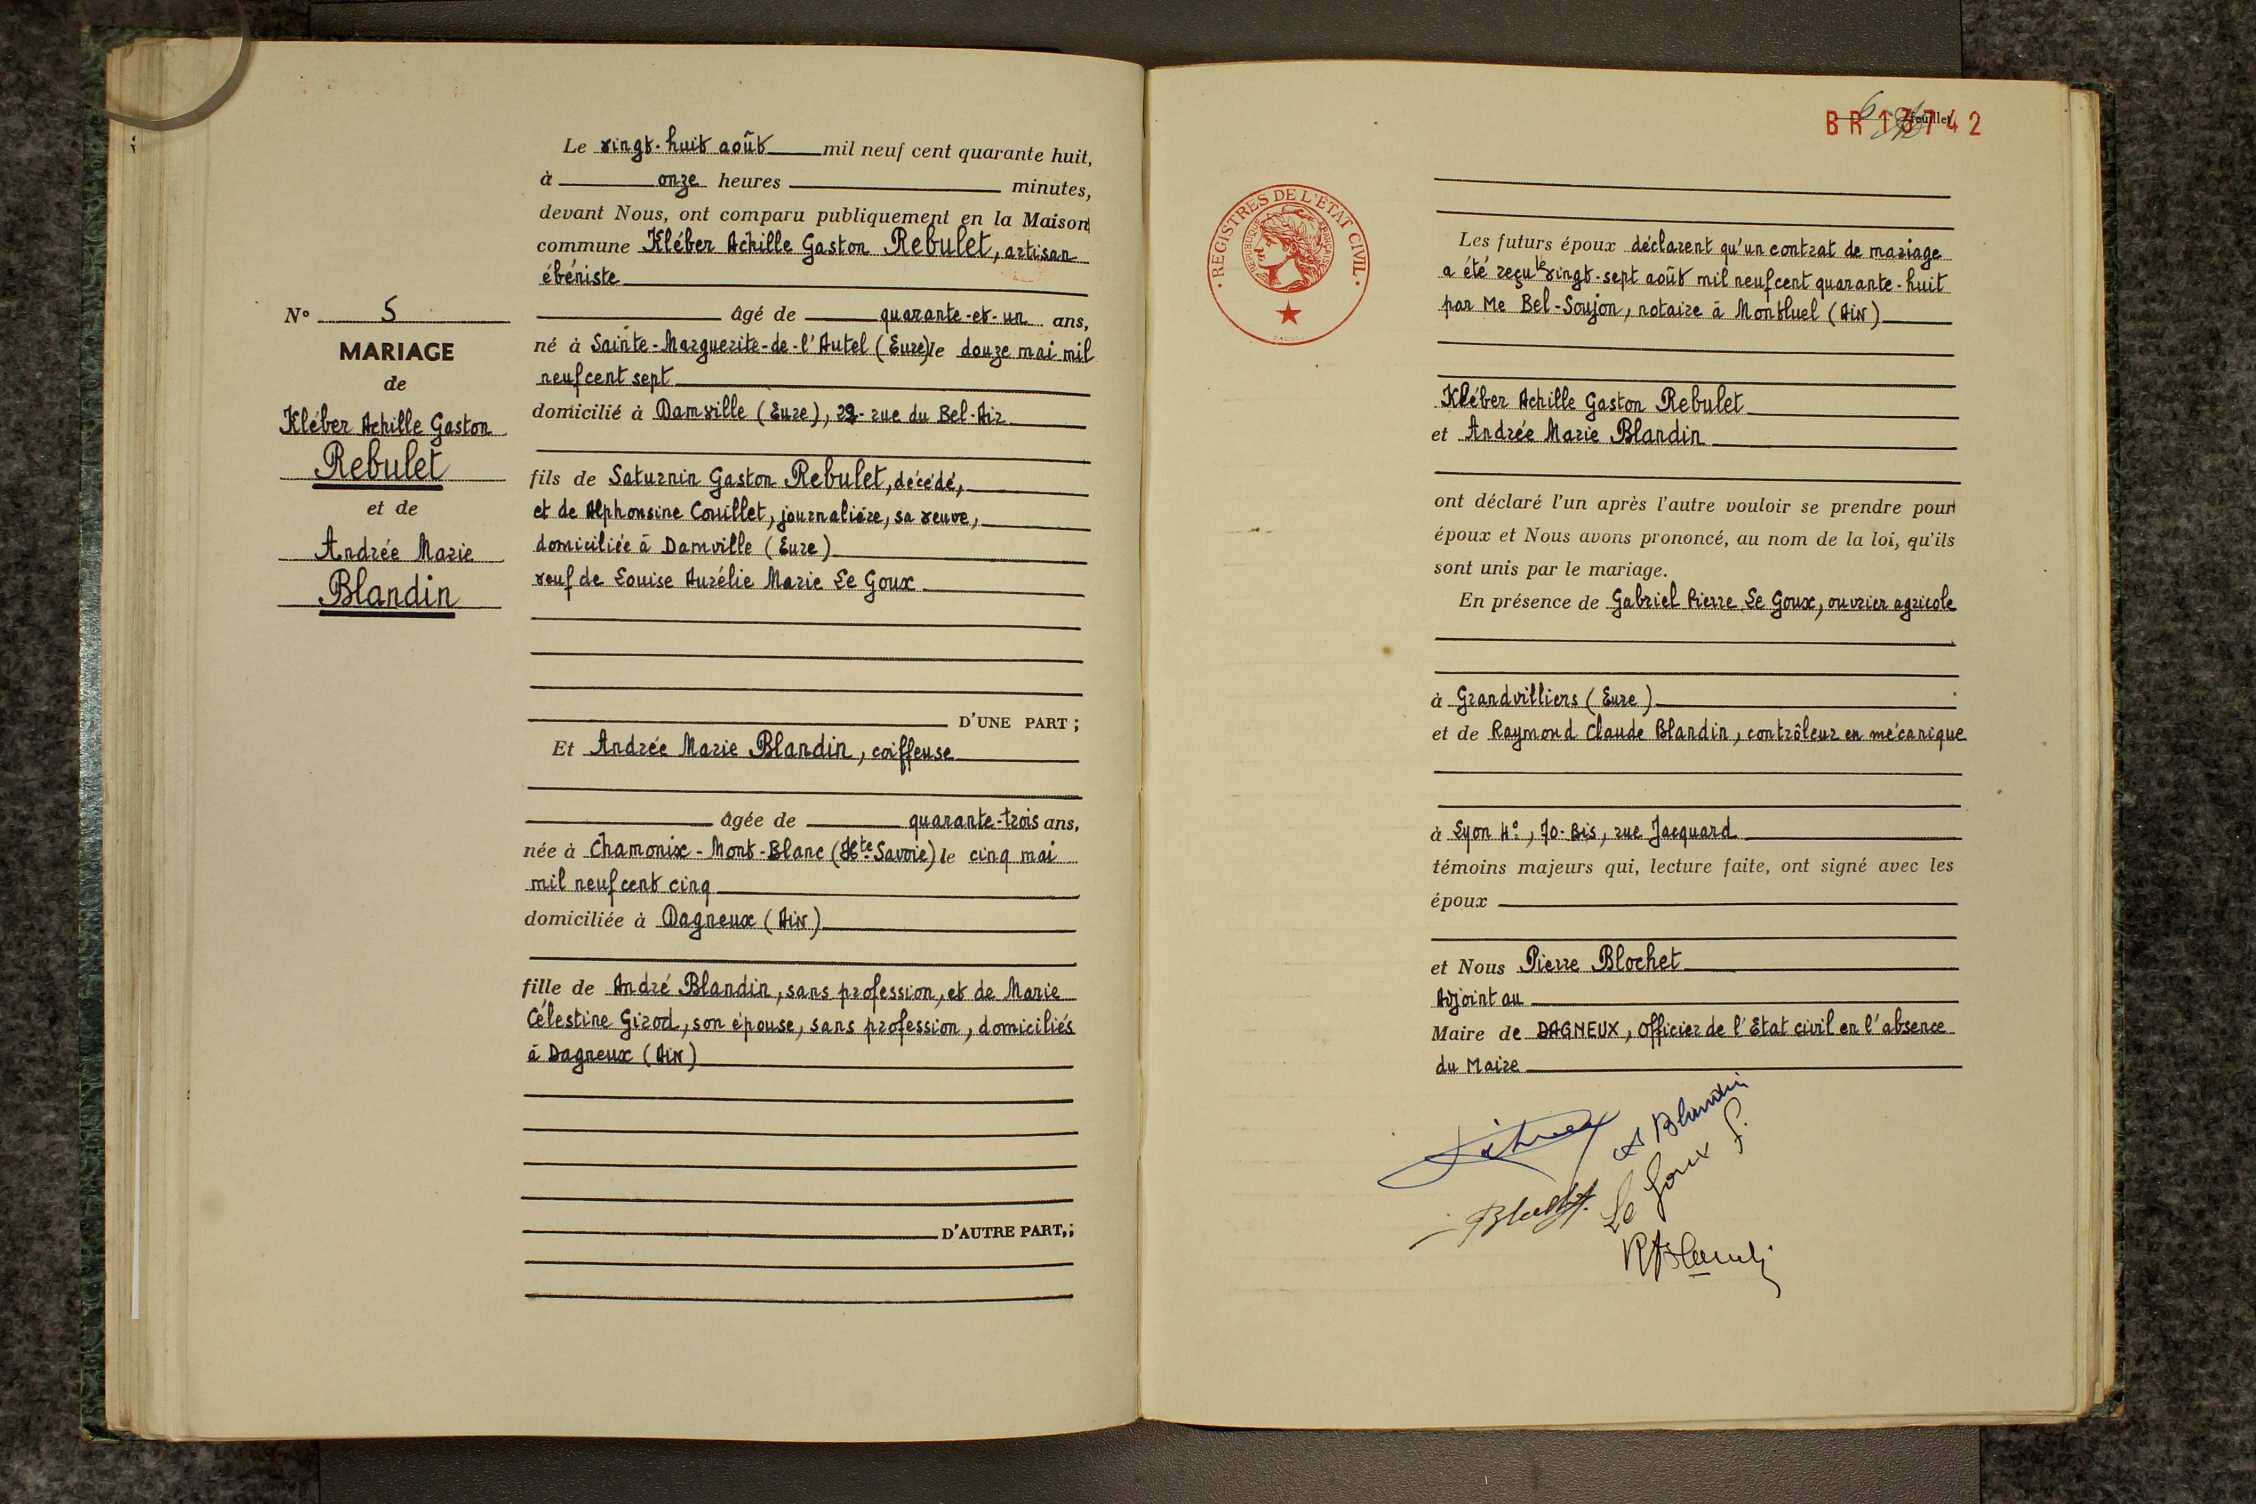 Le vingt-huit août mil neuf cent quarante huit,
à onze heures minutes,
devant Nous, ont comparu publiquement en la Maison
commune Kléber Achille Gaston Rebulet, artisan
ébéniste
âgé de quarante-et-un ans,
né à Sainte-Marguerite-de-l'Autel (Eure) le douze mai mil
neuf cent sept
domicilié à Damville (Eure), 22- rue du Bel-Air
fils de Saturnin Gaston Rebulet, décédé,
et de Alphonsine Couillet, journalière, sa veuve,
domiciliée à Damville (Eure)
veuf de Louise Aurélie Marie Le Goux
D'UNE PART ;
Et Andrée Marie Blandin, coiffeuse
âgée de quarante-trois ans,
née à Chamonix-Mont-Blanc (Hte Savoie) le cinq mai
mil neuf cent cinq
domiciliée à Dagneux (Ain)
fille de André Blandin, sans profession, et de Marie
Célestine Girod, son épouse, sans profession, domiciliés
à Dagneux (Ain)
D'AUTRE PART,;
N° 5
MARIAGE
de
Kléber Achille Gaston
Rebulet
et de
Andrée Marie
Blandin
BR 13742
6 feuillet
REGISTRES DE L'ETAT CIVIL
REPUBLIQUE FRANÇAISE
Les futurs époux déclarent qu'un contrat de mariage
a été reçu le vingt-sept août mil neuf cent quarante-huit
par Me Bel-Soujon, notaire à Montluel (Ain)
Kléber Achille Gaston Rebulet
et Andrée Marie Blandin
ont déclaré l'un après l'autre vouloir se prendre pour
époux et Nous avons prononcé, au nom de la loi, qu'ils
sont unis par le mariage.
En présence de Gabriel Pierre Le Goux, ouvrier agricole
à Grandvilliers (Eure)
et de Raymond Claude Blandin, contrôleur en mécanique
à Lyon 4°, 70-Bis, rue Jacquard
témoins majeurs qui, lecture faite, ont signé avec les
époux
et Nous Pierre Blochet
Adjoint au
Maire de DAGNEUX, Officier de l'Etat civil en l'absence
du Maire
A Blandin
Le Goux G.
R Blandin